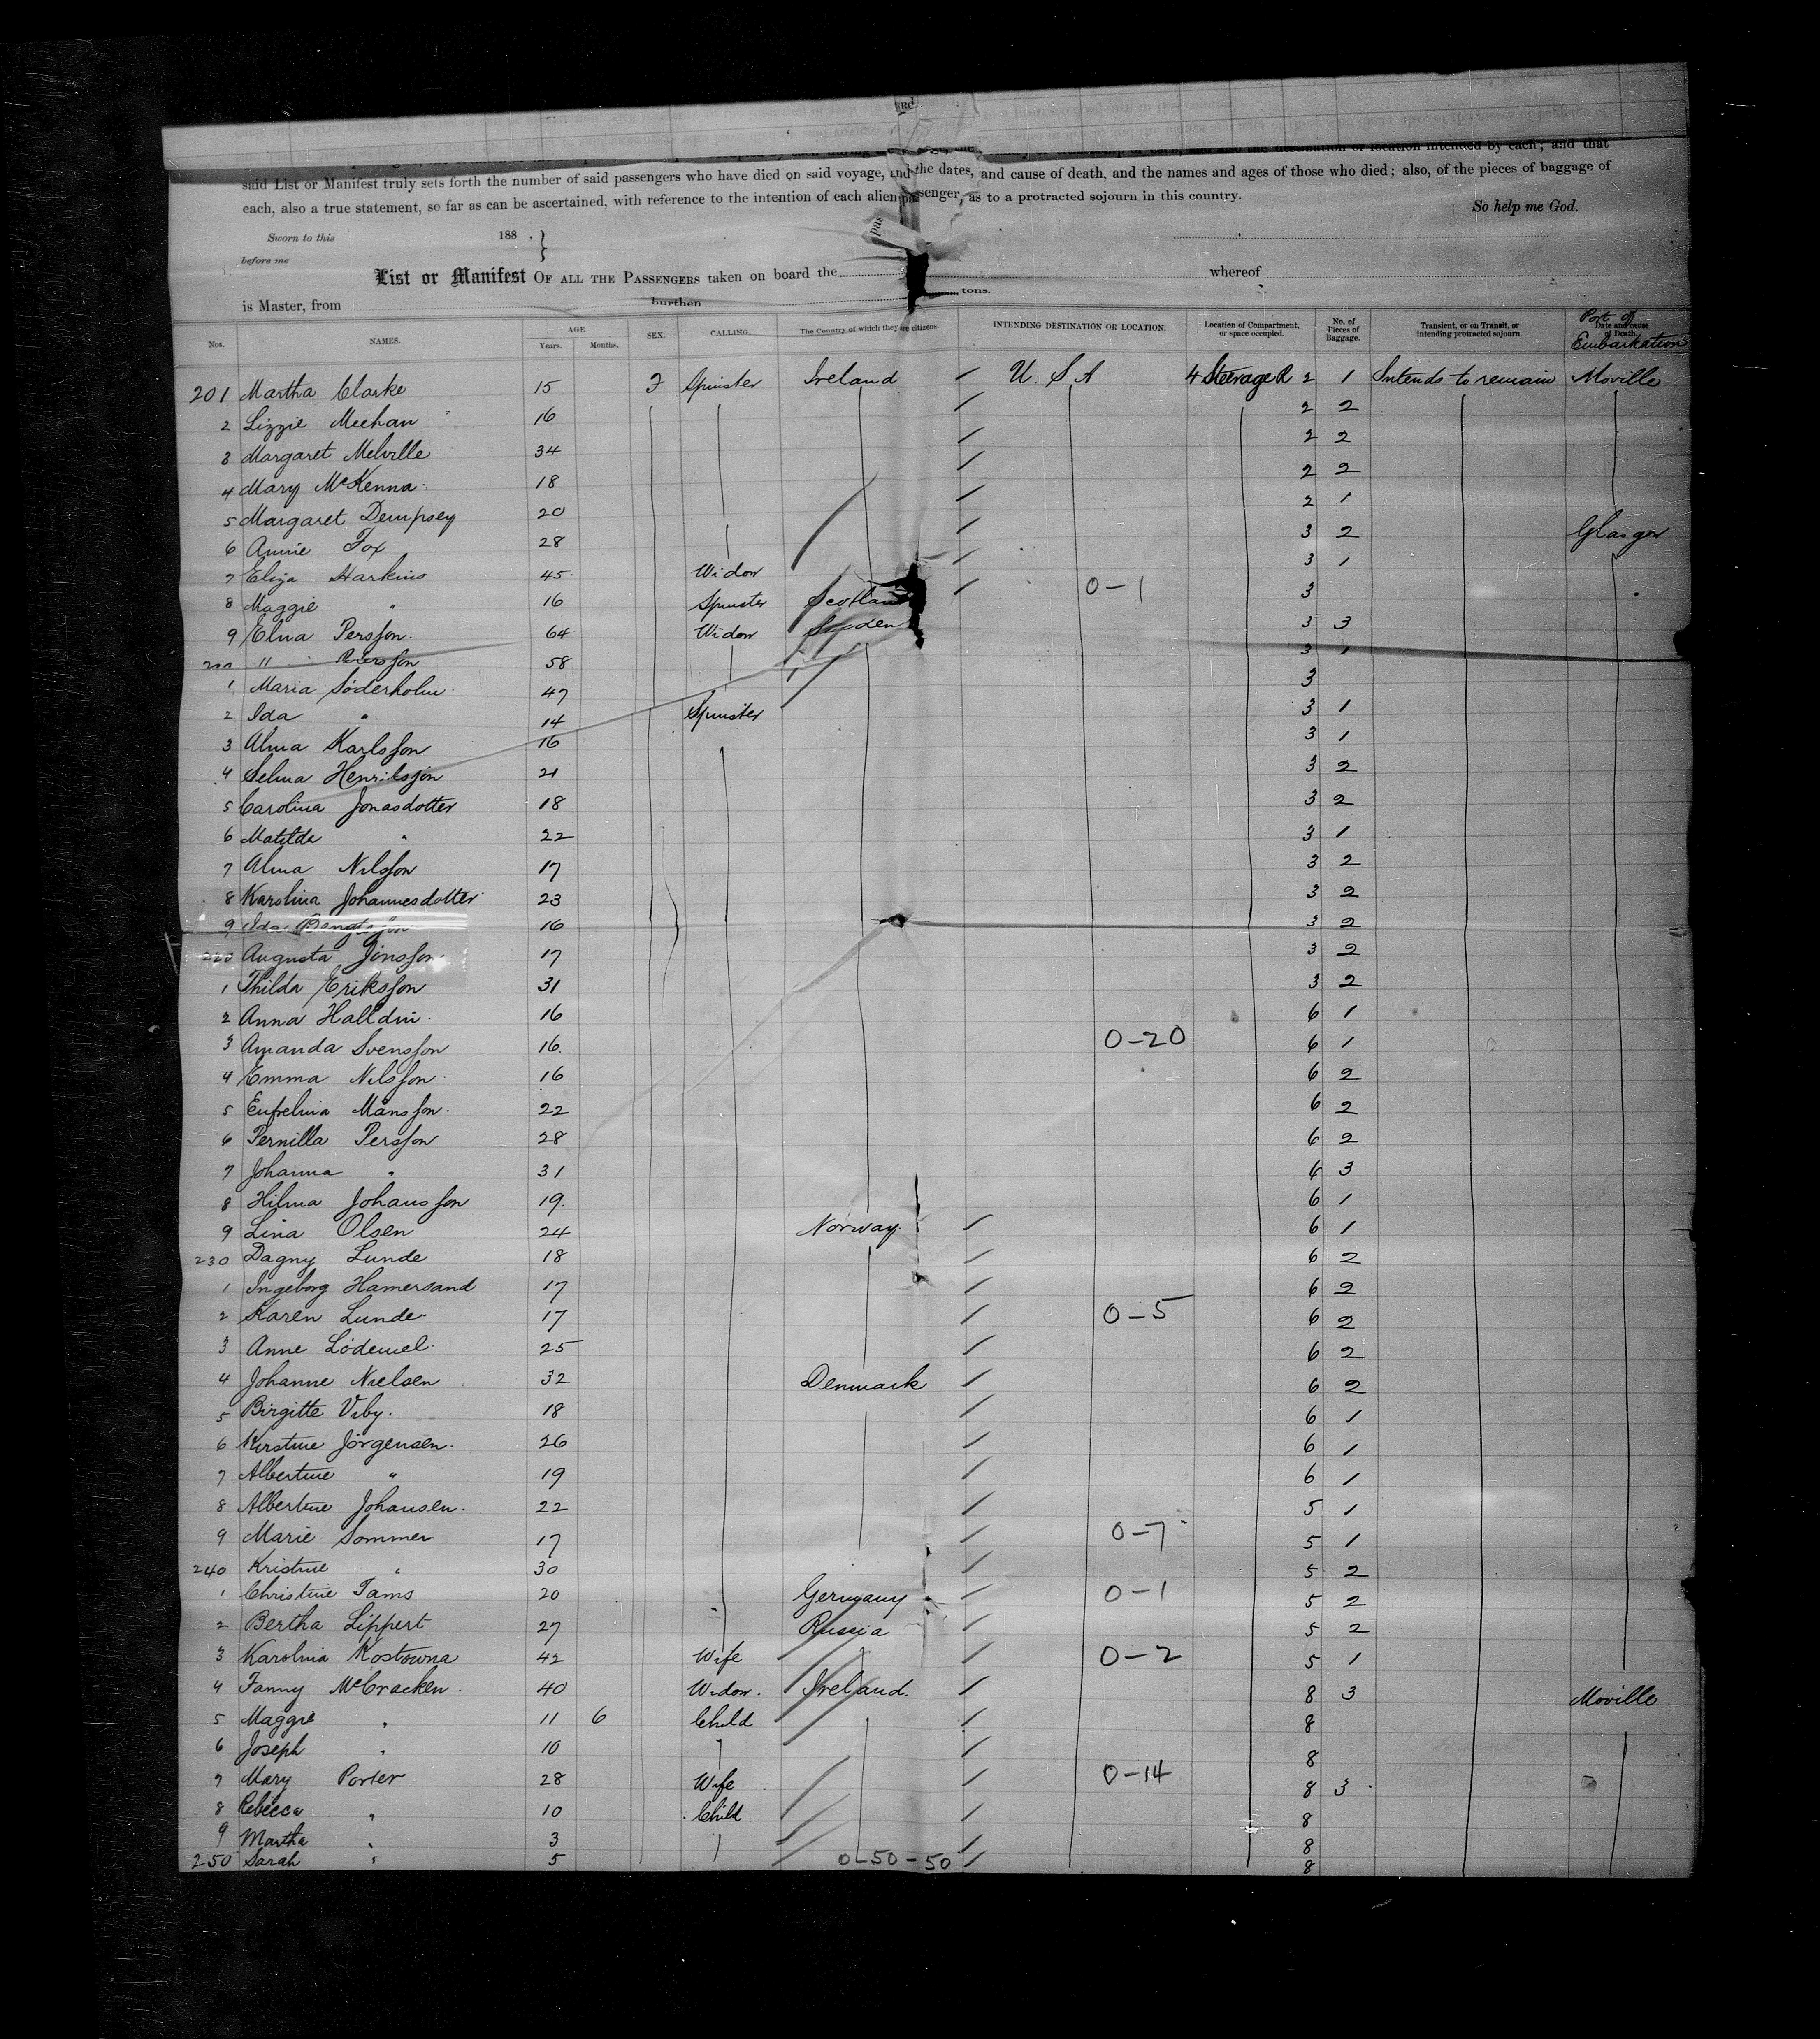 said List or Manifest truly sets forth the number of said passengers who have died on said voyage, and the dates, and cause of death, and the names and ages of those who died; also, of the pieces of baggage of
each, also a true statement, so far as can be ascertained, with reference to the intention of each alien passenger, as to a protracted sojourn in this country. So help me God.
Sworn to this 188 . }
before me
List or Manifest OF ALL THE PASSENGERS taken on board the whereof
is Master, from burthen tons.
Nos. NAMES. AGE Years. Months. SEX. CALLING. The Country of which they are citizens. INTENDING DESTINATION OR LOCATION. Location of Compartment, or space occupied. No. of Pieces of Baggage. Transient, or on Transit, or intending protracted sojourn. Date and cause of Death. Port of Embarkation
201 Martha Clarke 15 Spinster Ireland / U. S A 4 Steerage R 2 1 Intends to remain Moville
2 Lizzie Meehan 16 / 2 2
3 Margaret Melville 34 / 2 2
4 Mary McKenna 18 / 2 2
5 Margaret Dempsey 20 / 2 1
6 Annie Fox 28 / 3 2 Glasgow
7 Eliza Harkins 45 Widow / 3 1
8 Maggie " 16 Spinster Scotland / 0-1 3
9 Elna Persson 64 Widow Sweden 3 3
" Peterson 58 3 1
1 Maria Söderholm 47 3
2 Ida " 14 Spinster 3 1
3 Alma Karlsson 16 3 1
4 Selma Henriksson 21 3 2
5 Carolina Jonasdotter 18 3 2
6 Matilda " 22 3 1
7 Alma Nilsson 17 3 2
8 Karolina Johannesdotter 23 3 2
9 Ida Bengtsson 16 3 2
220 Augusta Jönsson 17 3 2
1 Thilda Eriksson 31 3 2
2 Anna Halldin 16 6 1
3 Amanda Svensson 16 0-20 6 1
4 Emma Nilsson 16 6 2
5 Eufrelina Månsson 22 6 2
6 Pernilla Persson 28 6 2
7 Johanna " 31 6 3
8 Hilma Johansson 19 6 1
9 Lina Olsen 24 Norway / 6 1
230 Dagny Lunde 18 / 6 2
1 Ingeborg Hamersand 17 / 6 2
2 Karen Lunde 17 / 0-5 6 2
3 Anne Lödemel 25 / 6 2
4 Johanne Nielsen 32 Denmark / 6 2
5 Birgitte Viby 18 / 6 1
6 Kirstine Jörgensen 26 / 6 1
7 Albertine " 19 / 6 1
8 Albertine Johansen 22 / 5 1
9 Marie Sommer 17 / 0-7 5 1
240 Kristine " 30 / 5 2
1 Christine Tams 20 Germany / 0-1 5 2
2 Bertha Lippert 27 Russia / 5 2
3 Karolina Kostowna 42 Wife / 0-2 5 1
4 Fanny McCracken 40 Widow Ireland / 8 3 Moville
5 Maggie " 11 6 Child / 8
6 Joseph " 10 " / 8
7 Mary Porter 28 Wife / 0-14 8 3
8 Rebecca " 10 Child / 8
9 Martha " 3 / 8
250 Sarah " 5 0-50-50 / 8